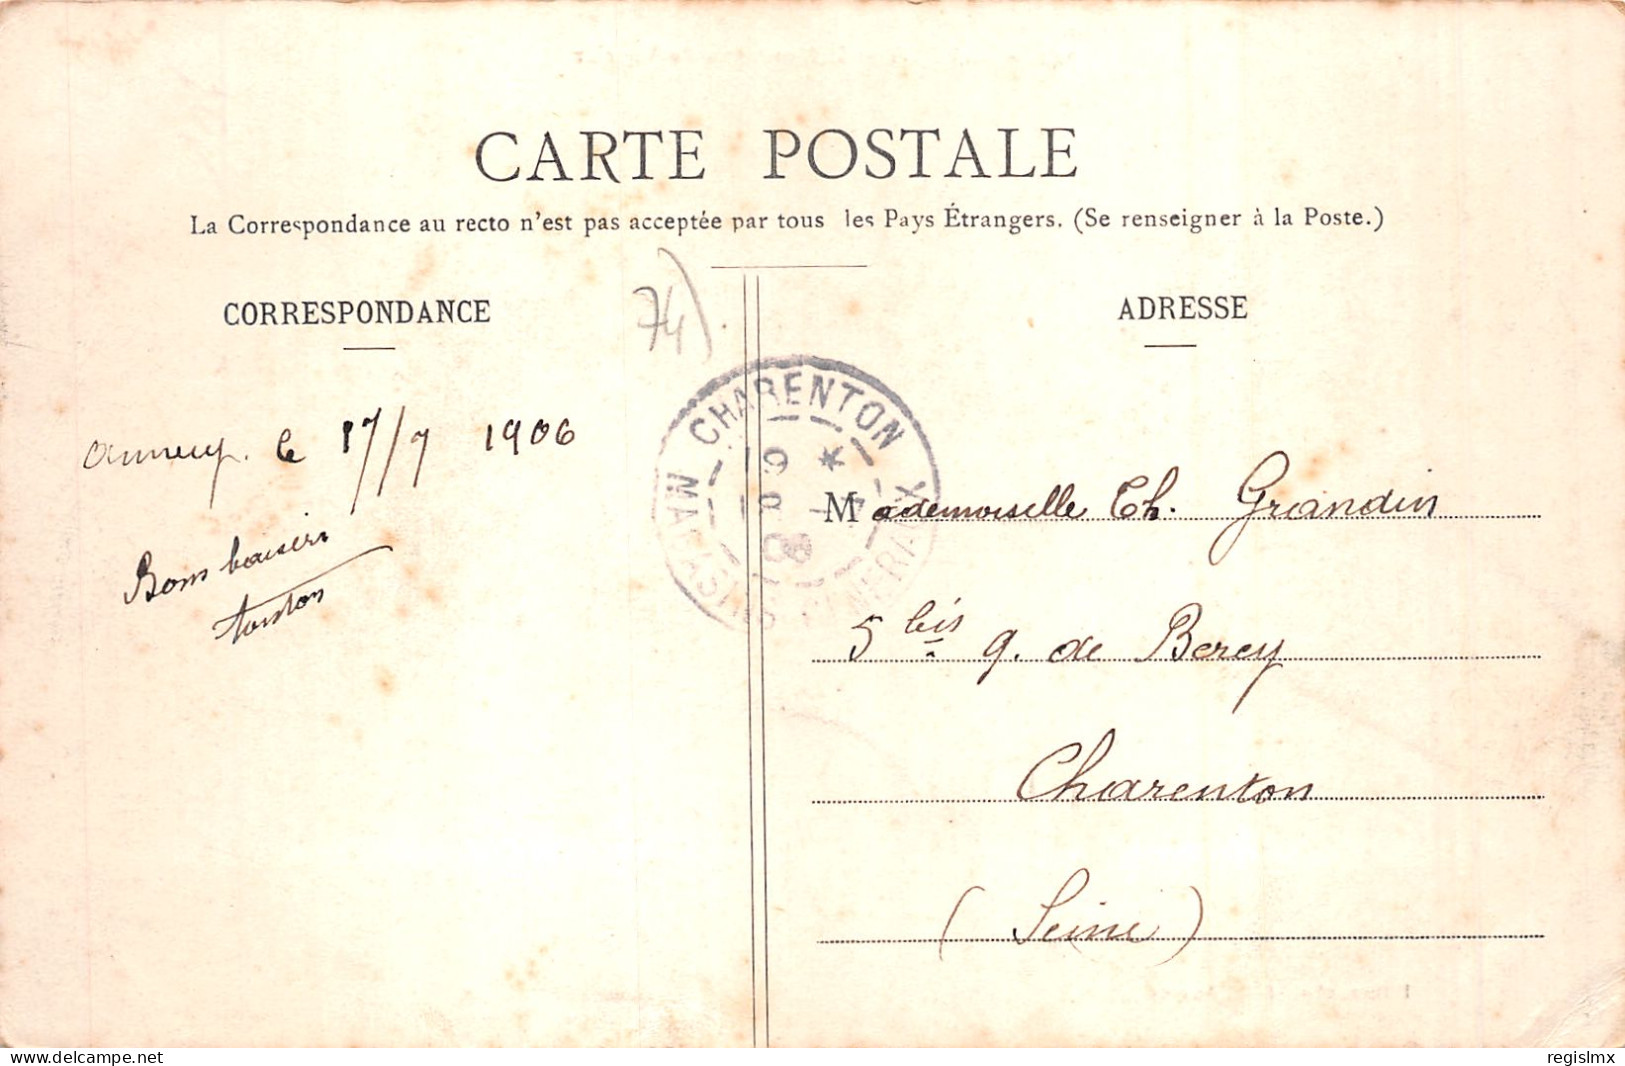 CARTE POSTALE
La Correspondance au recto n'est pas acceptée par tous les Pays Étrangers. (Se renseigner à la Poste.)
CORRESPONDANCE
74)
annecy. le 17/7 1906
Bons baisers
tonton
CHARENTON
MAGASINS GENERAUX
ADRESSE
Mademoiselle Ch. Grandin
5 bis q. de Bercy
Charenton
(Seine)
www.delcampe.net
regislmx